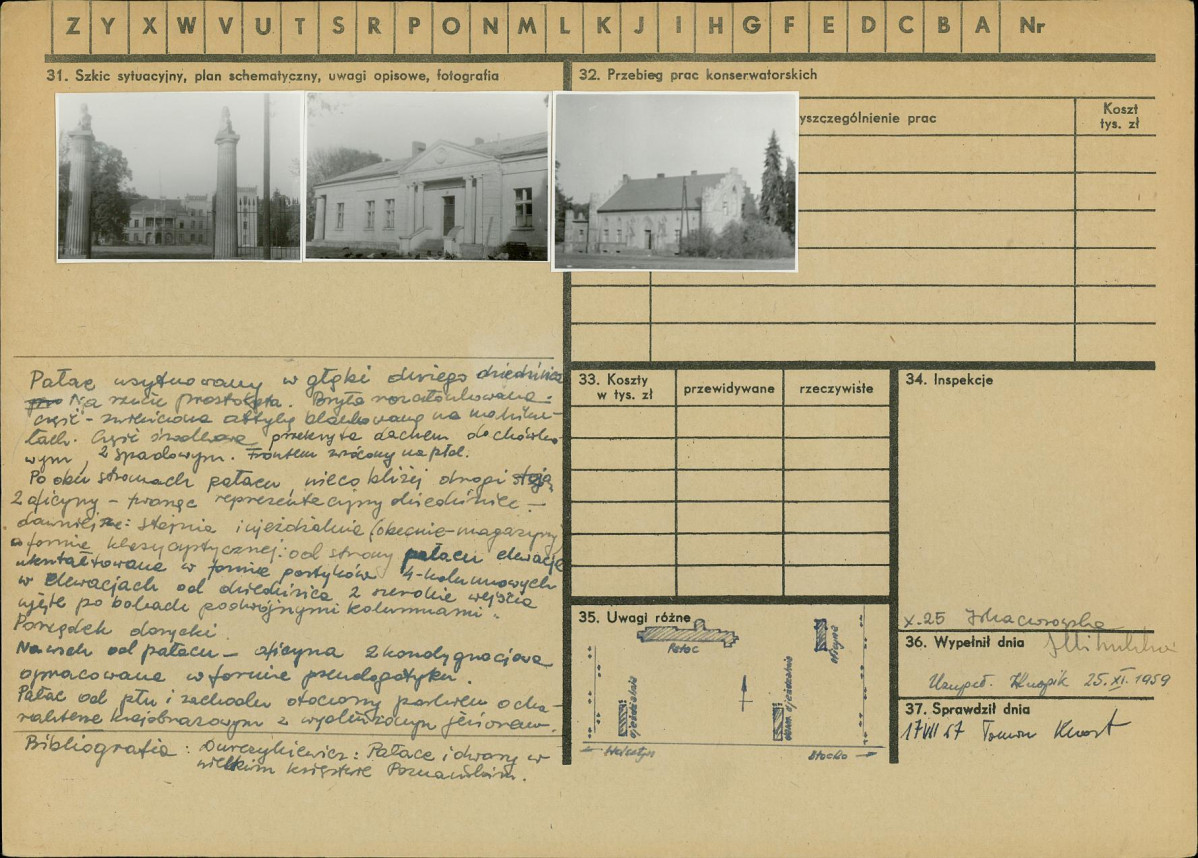 Z Y X W V U T S R P O N M L K J I H G F E D C B A Nr
31. Szkic sytuacyjny, plan schematyczny, uwagi opisowe, fotografia
32. Przebieg prac konserwatorskich
yszczególnienie prac
Koszt
tys. zł
Pałac usytuowany w głębi dużego dziedzińca
Na rzucie prostokąta. Bryła rozczłonkowana:
część - zwieńczona attyką blankowaną na
Część środkowa przekryta dachem dachówko-
wym, 2 spadowym. Frontem zwrócony na płd.
Po obu stronach pałacu nieco bliżej drogi stoją
2 oficyny - tworząc reprezentacyjny dziedziniec -
dawniejsze: stajnia i ujeżdżalnia (obecnie - magazyny
w formie klasycystycznej: od strony pałacu elewacje
ukształtowane w formie portyków 4-kolumnowych
w elewacjach od dziedzińca 2 szerokie wejścia
ujęte po bokach podwójnymi kolumnami.
Porządek dorycki.
Na wsch od pałacu - oficyna 2 kondygnacjowa
opracowana w formie pseudogotyku.
Pałac od płn i zachodu otoczony parkiem o cha-
rakterze krajobrazowym z wydłużonym jeziorem.
Bibliografia: Durczykiewicz: Pałace i dwory w
wielkim księstwie Poznańskim.
33. Koszty
w tys. zł
przewidywane
rzeczywiste
34. Inspekcje
35. Uwagi różne
Pałac
oficyna
ujeżdżalnia
Stocko
X.25
36. Wypełnił dnia
Uzupeł. 25.XI.1959
37. Sprawdził dnia
17 VII 67 Tomon